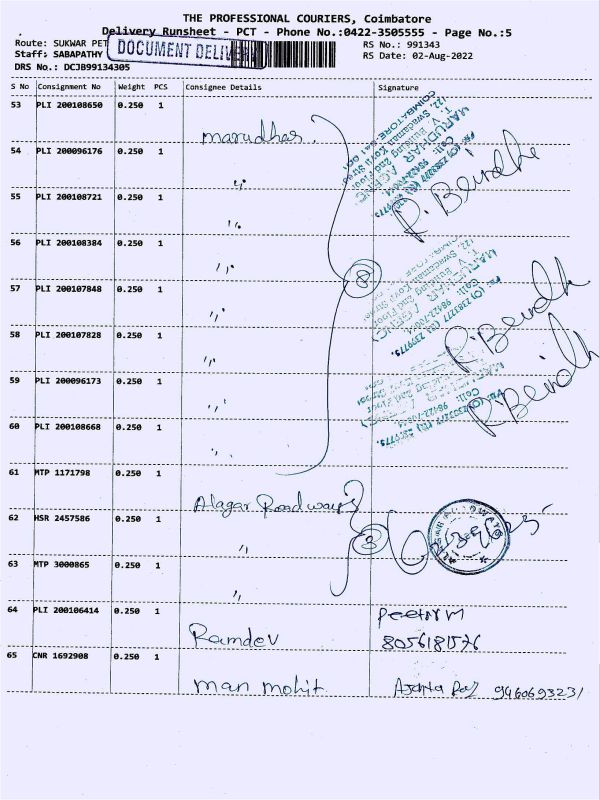 THE PROFESSIONAL COURIERS, Coimbatore
Delivery Runsheet - PCT - Phone No.:0422-3505555 - Page No.:5
Route: SUKWAR PET
RS No.: 991343
DOCUMENT DELIV
Staff: SABAPATHY
RS Date: 02-Aug-2022
DRS No.: DCJB99134305
S No Consignment No Weight PCS Consignee Details Signature
53 PLI 200108650 0.250 1 marudhar
54 PLI 200096176 0.250 1 "
55 PLI 200108721 0.250 1 "
56 PLI 200108384 0.250 1 "
57 PLI 200107848 0.250 1 "
58 PLI 200107828 0.250 1 "
59 PLI 200096173 0.250 1 "
60 PLI 200108668 0.250 1 "
8
MARUDHAR
61 MTP 1171798 0.250 1 Alagar Roadways
62 HSR 2457586 0.250 1 "
63 MTP 3000865 0.250 1 "
3
64 PLI 200106414 0.250 1 Ramdev
8056181576
65 CNR 1692908 0.250 1 man mohit